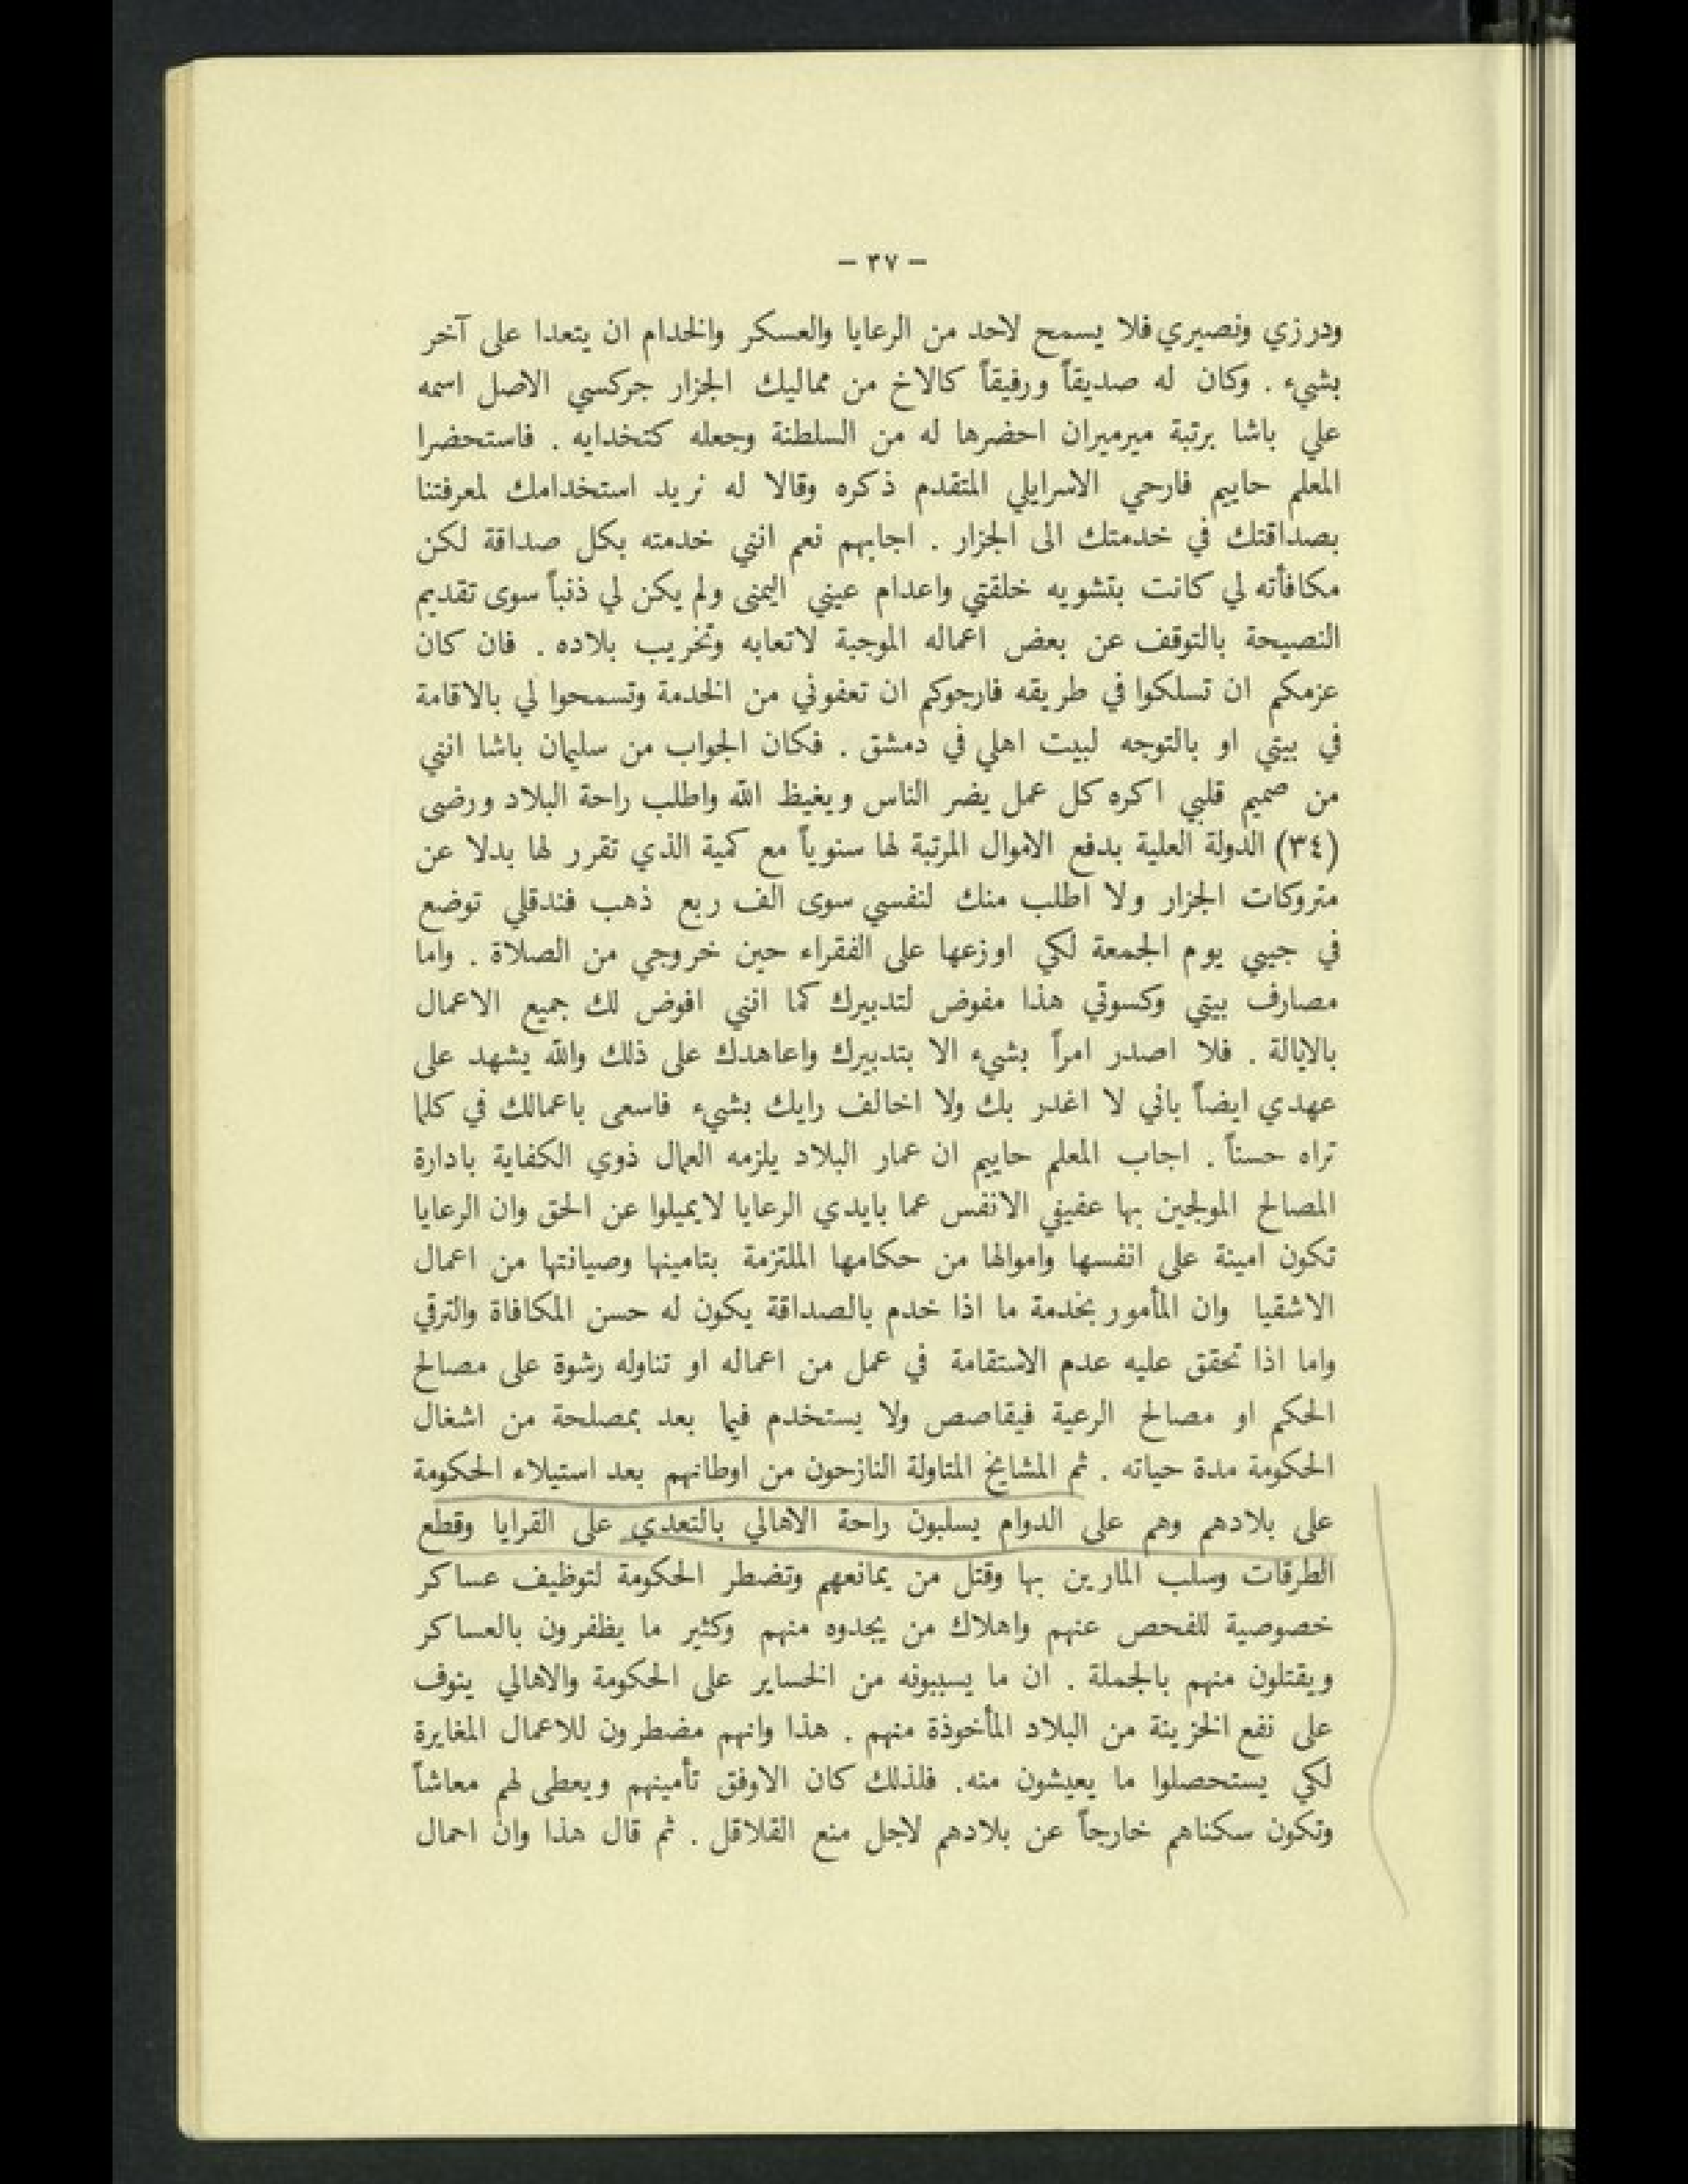 — ٣٧ —
ودرزي ونصيري فلا يسمح لاحد من الرعايا والعسكر والخدام ان يتعدا على آخر
بشيء . وكان له صديقاً ورفيقاً كالاخ من مماليك الجزار جركسي الاصل اسمه
علي باشا برتبة ميرميران احضرها له من السلطنة وجعله كتخدايه . فاستحضرا
المعلم حاييم فارحي الاسرايلي المتقدم ذكره وقالا له نريد استخدامك لمعرفتنا
بصداقتك في خدمتك الى الجزار . اجابهم نعم انني خدمته بكل صداقة لكن
مكافأته لي كانت بتشويه خلقتي واعدام عيني اليمنى ولم يكن لي ذنباً سوى تقديم
النصيحة بالتوقف عن بعض اعماله الموجبة لاتعابه وتخريب بلاده . فان كان
عزمكم ان تسلكوا في طريقه فارجوكم ان تعفوني من الخدمة وتسمحوا لي بالاقامة
في بيتي او بالتوجه لبيت اهلي في دمشق . فكان الجواب من سليمان باشا انني
من صميم قلبي اكره كل عمل يضر الناس ويغيظ الله واطلب راحة البلاد ورضى
(٣٤) الدولة العلية بدفع الاموال المرتبة لها سنوياً مع كمية الذي تقرر لها بدلا عن
متروكات الجزار ولا اطلب منك لنفسي سوى الف ربع ذهب فندقلي توضع
في جيبي يوم الجمعة لكي اوزعها على الفقراء حين خروجي من الصلاة . واما
مصارف بيتي وكسوتي هذا مفوض لتدبيرك كما انني افوض لك جميع الاعمال
بالايالة . فلا اصدر امراً بشيء الا بتدبيرك واعاهدك على ذلك والله يشهد على
عهدي ايضاً باني لا اغدر بك ولا اخالف رايك بشيء فاسعى باعمالك في كلما
تراه حسناً . اجاب المعلم حاييم ان عمار البلاد يلزمه العمال ذوي الكفاية بادارة
المصالح المولجين بها عفيفي الانفس عما بايدي الرعايا لايميلوا عن الحق وان الرعايا
تكون امينة على انفسها واموالها من حكامها الملتزمة بتامينها وصيانتها من اعمال
الاشقيا وان المأمور بخدمة ما اذا خدم بالصداقة يكون له حسن المكافاة والترقي
واما اذا تحقق عليه عدم الاستقامة في عمل من اعماله او تناوله رشوة على مصالح
الحكم او مصالح الرعية فيقاصص ولا يستخدم فيما بعد بمصلحة من اشغال
الحكومة مدة حياته . ثم المشايخ المتاولة النازحون من اوطانهم بعد استيلاء الحكومة
على بلادهم وهم على الدوام يسلبون راحة الاهالي بالتعدي على القرايا وقطع
الطرقات وسلب المارين بها وقتل من يمانعهم وتضطر الحكومة لتوظيف عساكر
خصوصية للفحص عنهم واهلاك من يجدوه منهم وكثير ما يظفرون بالعساكر
ويقتلون منهم بالجملة . ان ما يسببونه من الخساير على الحكومة والاهالي ينوف
على نفع الخزينة من البلاد المأخوذة منهم . هذا وانهم مضطرون للاعمال المغايرة
لكي يستحصلوا ما يعيشون منه. فلذلك كان الاوفق تأمينهم ويعطى لهم معاشاً
وتكون سكناهم خارجاً عن بلادهم لاجل منع القلاقل . ثم قال هذا وان احمال